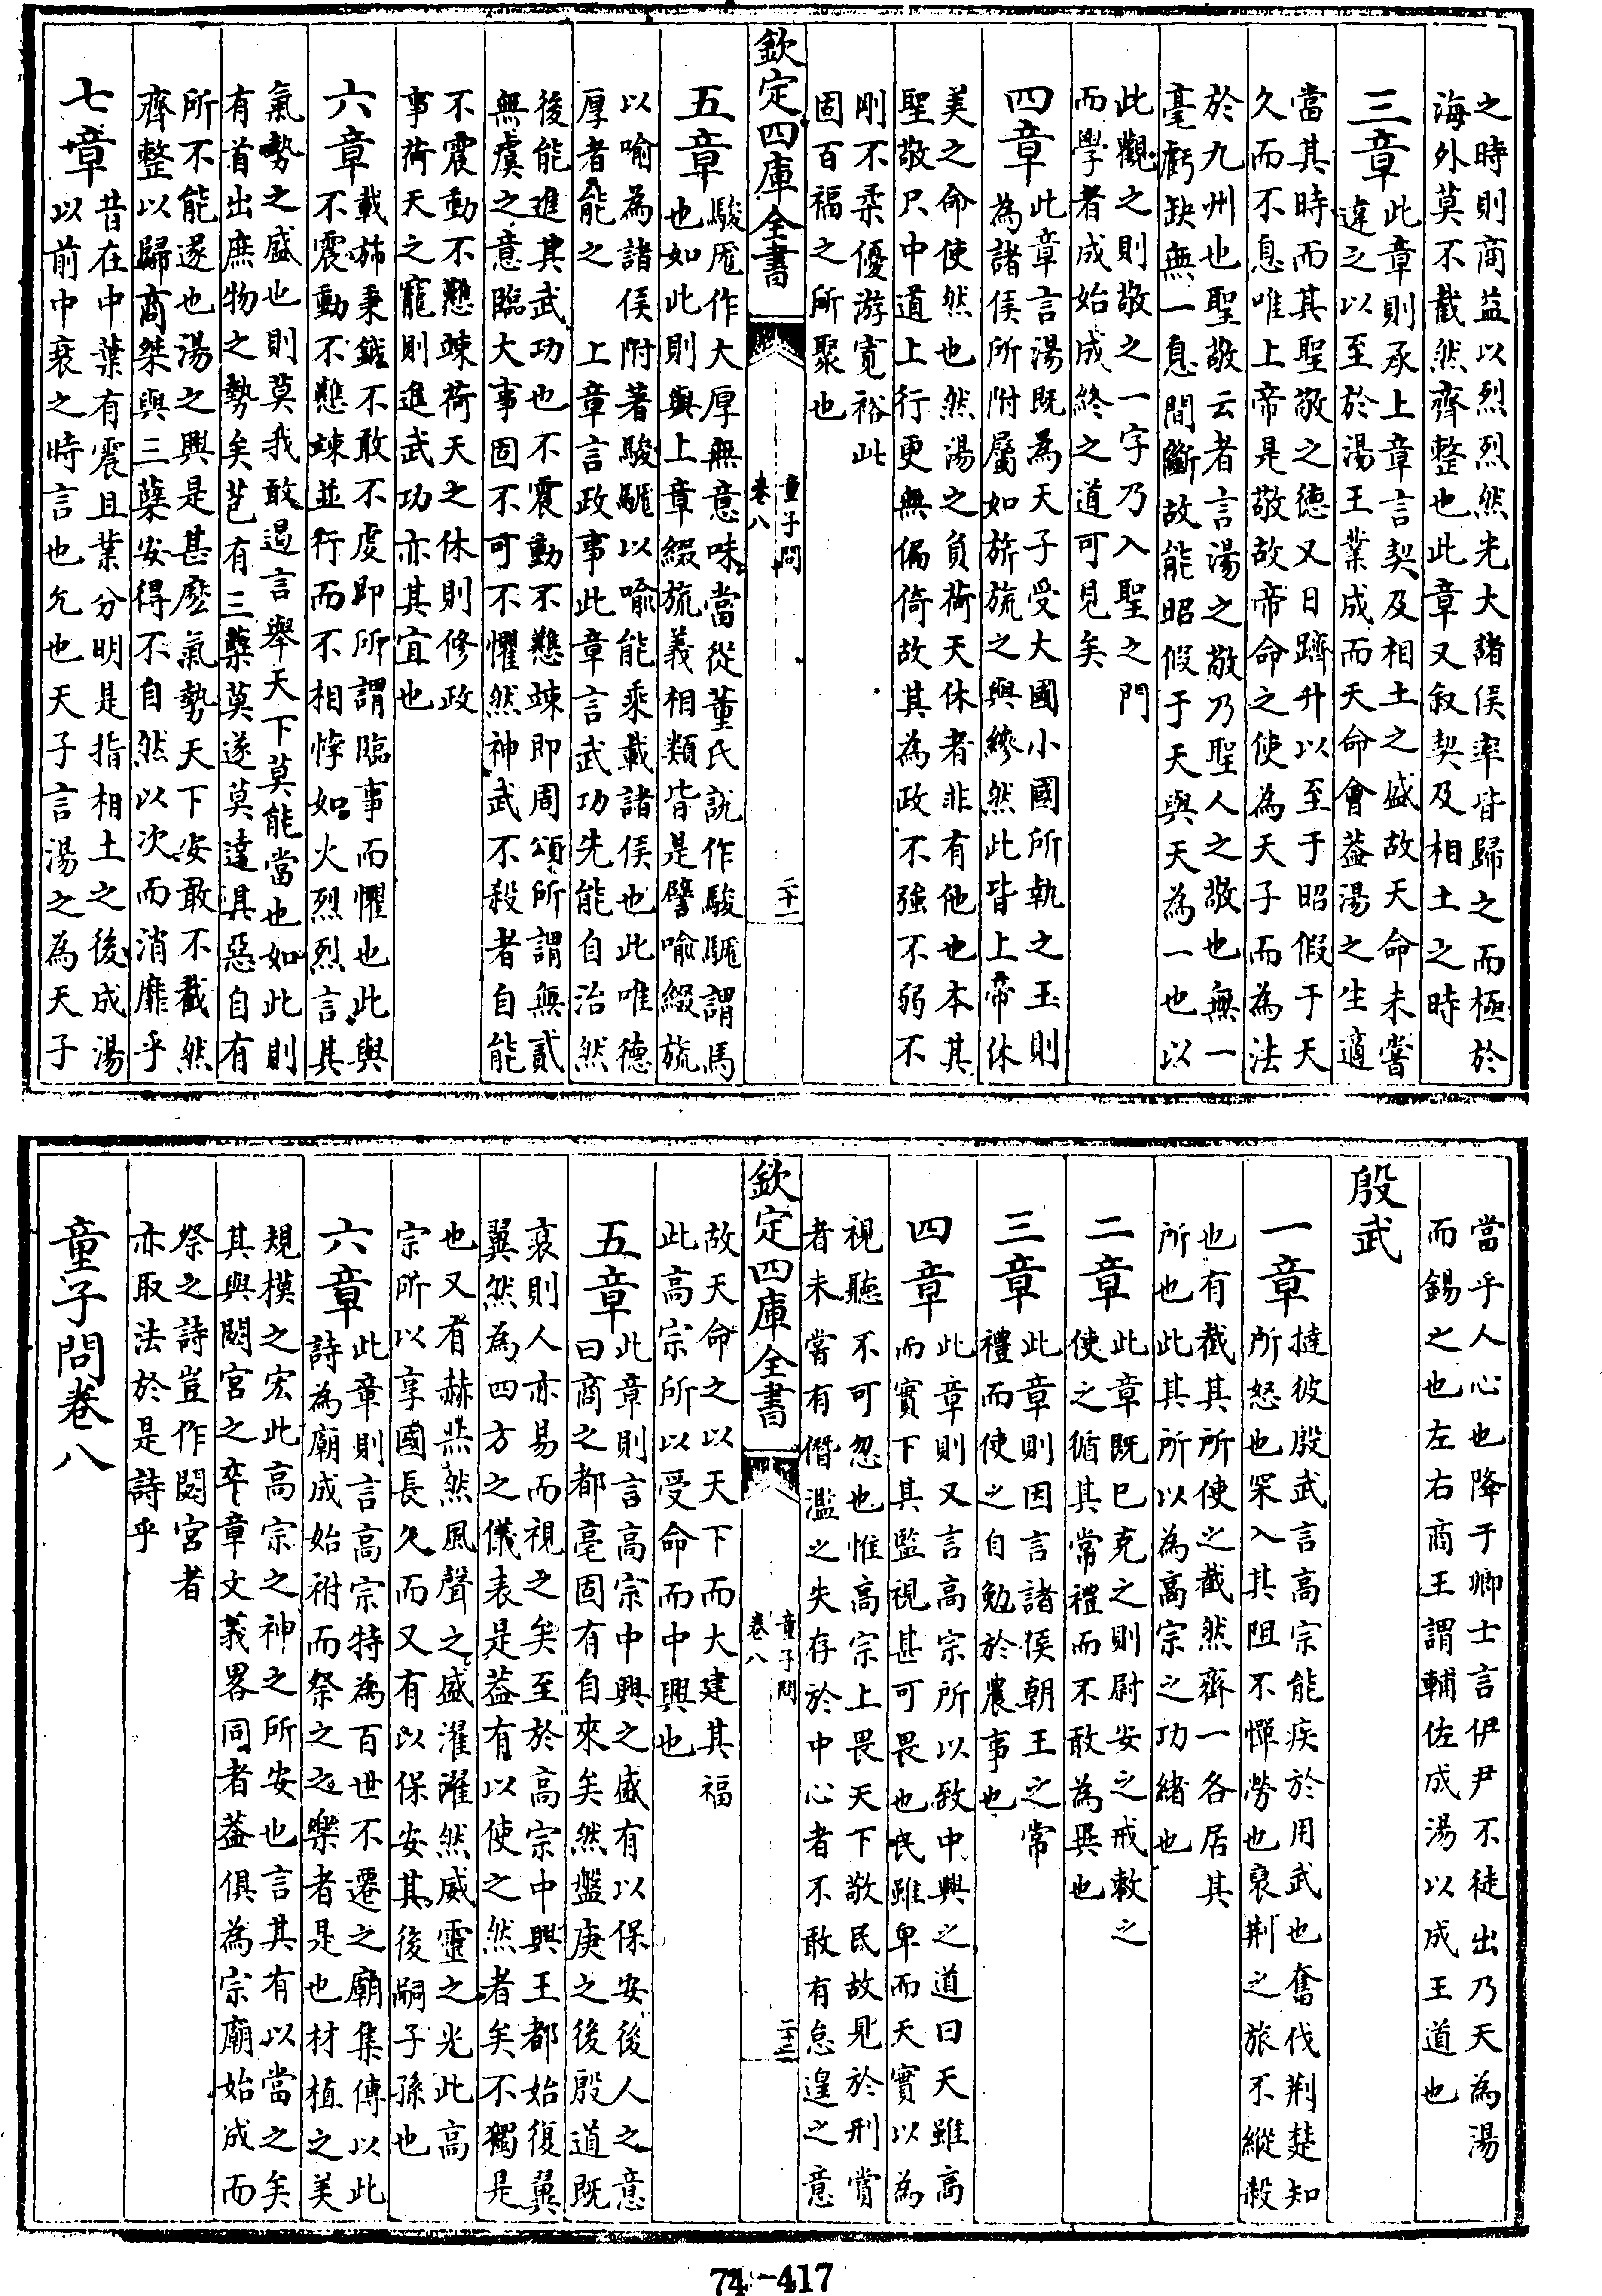 之時則商益以烈烈然光大諸侯率皆歸之而極於
海外莫不截然齊整也此章又叙契及相土之時
三章此章則承上章言契及相土之盛故天命未嘗
違之以至於湯王業成而天命會葢湯之生適
當其時而其聖敬之徳又日躋升以至于昭假于天
久而不息唯上帝是敬故帝命之使為天子而為法
於九州也聖敬云者言湯之敬乃聖人之敬也無一
毫虧缺無一息間斷故能昭假于天與天為一也以
此觀之則敬之一字乃入聖之門
而學者成始成終之道可見矣
四章此章言湯既為天子受大國小國所執之玉則
為諸侯所附屬如旂旒之與縿然此皆上帝休
美之命使然也然湯之負荷天休者非有他也本其
聖敬只中道上行更無偏倚故其為政不强不弱不
剛不柔優游寛裕此
固百福之所聚也
欽定四庫全書
童子問
卷八
二十一
五章駿厖作大厚無意味當從董氏說作駿駹謂馬
也如此則與上章綴旒義相類皆是譬喻綴旒
以喻為諸侯附著駿駹以喻能乘載諸侯也此唯徳
厚者能之　上章言政事此章言武功先能自治然
後能進其武功也不震動不戁竦即周頌所謂無貳
無虞之意臨大事固不可不懼然神武不殺者自能
不震動不戁竦荷天之休則修政
事荷天之寵則進武功亦其宜也
六章載旆秉鉞不敢不虔即所謂臨事而懼也此與
不震動不戁竦並行而不相悖如火烈烈言其
氣勢之盛也則莫我敢遏言舉天下莫能當也如此則
有首出庶物之勢矣苞有三蘖莫遂莫達具惡自有
所不能遂也湯之興是甚麽氣勢天下安敢不截然
齊整以歸商桀與三蘖安得不自然以次而消靡乎
七章昔在中葉有震且業分明是指相土之後成湯
以前中衰之時言也允也天子言湯之為天子
當乎人心也降于卿士言伊尹不徒出乃天為湯
而錫之也左右商王謂輔佐成湯以成王道也
殷武
一章撻彼殷武言高宗能疾於用武也奮伐荆楚知
所怒也罙入其阻不憚勞也裒荆之旅不縱殺
也有截其所使之截然齊一各居其
所也此其所以為高宗之功緒也
二章此章既已克之則尉安之戒敕之
使之循其常禮而不敢為異也
三章此章則因言諸侯朝王之常
禮而使之自勉於農事也
四章此章則又言高宗所以致中興之道曰天雖高
而實下其監視甚可畏也民雖卑而天實以為
視聽不可忽也惟高宗上畏天下敬民故見於刑賞
者未嘗有僭濫之失存於中心者不敢有怠遑之意
欽定四庫全書
童子問
卷八
二十二
故天命之以天下而大建其福
此高宗所以受命而中興也
五章此章則言高宗中興之盛有以保安後人之意
曰商之都亳固有自來矣然盤庚之後殷道既
衰則人亦易而視之矣至於高宗中興王都始復翼
翼然為四方之儀表是葢有以使之然者矣不獨是
也又有赫然風聲之盛濯濯然威靈之光此高
宗所以享國長久而又有以保安其後嗣子孫也
六章此章則言高宗特為百世不遷之廟集傳以此
詩為廟成始祔而祭之之樂者是也材植之美
規模之宏此高宗之神之所安也言其有以當之矣
其與閟宮之卒章文義畧同者葢俱為宗廟始成而
祭之詩豈作閟宮者
亦取法於是詩乎
童子問卷八
74-417